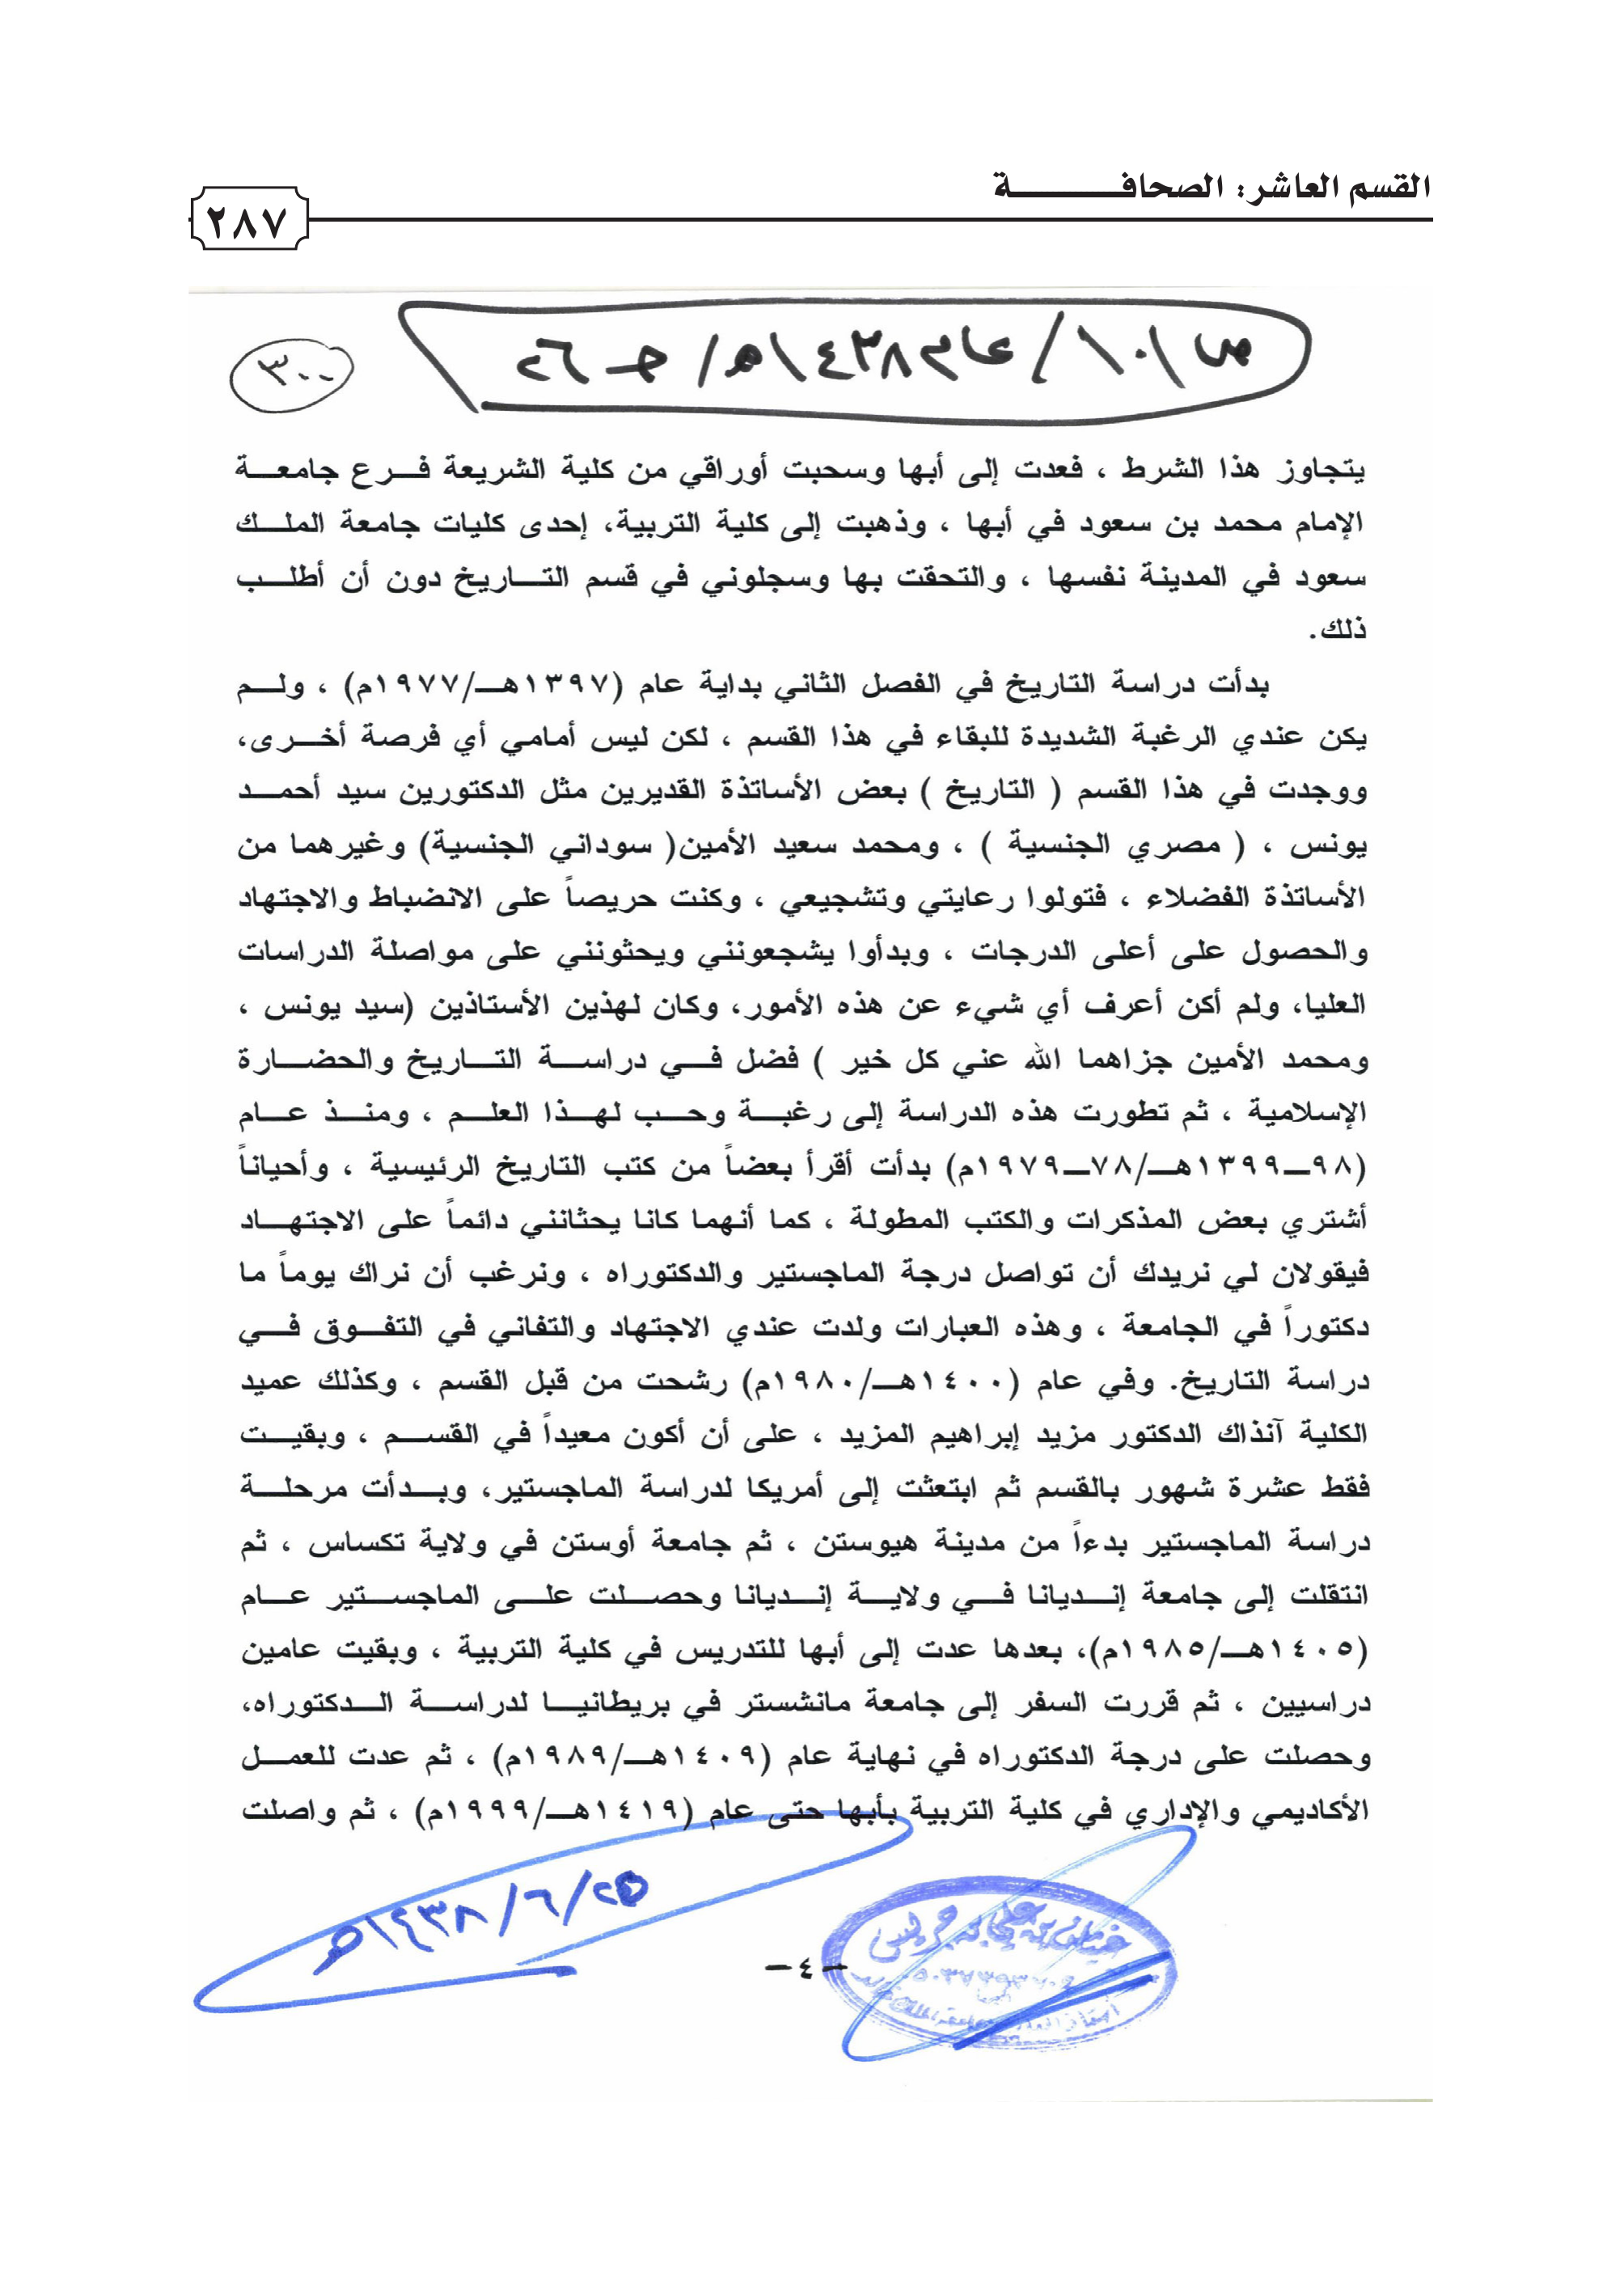 القسم العاشر: الصحافة
٢٨٧
ص/١٠/عام ١٤٣٨هـ/ جـ ٢٦
٣٠٠
يتجاوز هذا الشرط ، فعدت إلى أبها وسحبت أوراقي من كلية الشريعة فرع جامعة
الإمام محمد بن سعود في أبها ، وذهبت إلى كلية التربية، إحدى كليات جامعة الملك
سعود في المدينة نفسها ، والتحقت بها وسجلوني في قسم التاريخ دون أن أطلب
ذلك.
بدأت دراسة التاريخ في الفصل الثاني بداية عام (١٣٩٧هـ/١٩٧٧م) ، ولم
يكن عندي الرغبة الشديدة للبقاء في هذا القسم ، لكن ليس أمامي أي فرصة أخرى،
ووجدت في هذا القسم ( التاريخ ) بعض الأساتذة القديرين مثل الدكتورين سيد أحمد
يونس ، ( مصري الجنسية ) ، ومحمد سعيد الأمين( سوداني الجنسية) وغيرهما من
الأساتذة الفضلاء ، فتولوا رعايتي وتشجيعي ، وكنت حريصاً على الانضباط والاجتهاد
والحصول على أعلى الدرجات ، وبدأوا يشجعونني ويحثونني على مواصلة الدراسات
العليا، ولم أكن أعرف أي شيء عن هذه الأمور، وكان لهذين الأستاذين (سيد يونس ،
ومحمد الأمين جزاهما الله عني كل خير ) فضل في دراسة التاريخ والحضارة
الإسلامية ، ثم تطورت هذه الدراسة إلى رغبة وحب لهذا العلم ، ومنذ عام
(٩٨ــ١٣٩٩هـ/٧٨ــ١٩٧٩م) بدأت أقرأ بعضاً من كتب التاريخ الرئيسية ، وأحياناً
أشتري بعض المذكرات والكتب المطولة ، كما أنهما كانا يحثانني دائماً على الاجتهاد
فيقولان لي نريدك أن تواصل درجة الماجستير والدكتوراه ، ونرغب أن نراك يوماً ما
دكتوراً في الجامعة ، وهذه العبارات ولدت عندي الاجتهاد والتفاني في التفوق في
دراسة التاريخ. وفي عام (١٤٠٠هـ/١٩٨٠م) رشحت من قبل القسم ، وكذلك عميد
الكلية آنذاك الدكتور مزيد إبراهيم المزيد ، على أن أكون معيداً في القسم ، وبقيت
فقط عشرة شهور بالقسم ثم ابتعثت إلى أمريكا لدراسة الماجستير، وبدأت مرحلة
دراسة الماجستير بدءاً من مدينة هيوستن ، ثم جامعة أوستن في ولاية تكساس ، ثم
انتقلت إلى جامعة إنديانا في ولاية إنديانا وحصلت على الماجستير عام
(١٤٠٥هـ/١٩٨٥م)، بعدها عدت إلى أبها للتدريس في كلية التربية ، وبقيت عامين
دراسيين ، ثم قررت السفر إلى جامعة مانشستر في بريطانيا لدراسة الدكتوراه،
وحصلت على درجة الدكتوراه في نهاية عام (١٤٠٩هـ/١٩٨٩م) ، ثم عدت للعمل
الأكاديمي والإداري في كلية التربية بأبها حتى عام (١٤١٩هـ/١٩٩٩م) ، ثم واصلت
٢٥/٦/١٤٣٨هـ
غيثان بن علي بن جريس
-٤-